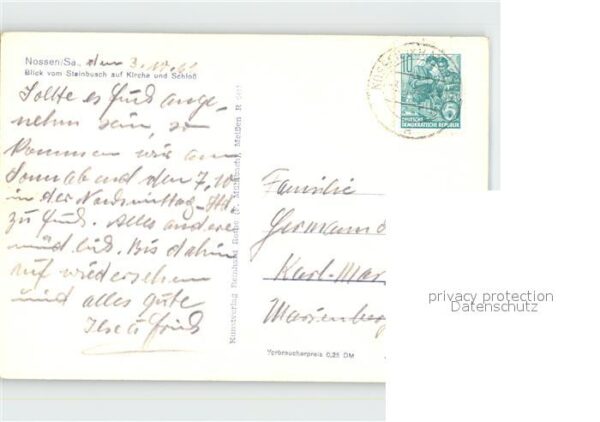 Nossen/Sa., den 3.10.61
Blick vom Steinbusch auf Kirche und Schloß
Sollte es Euch ange-
nehm sein, so
kommen wir am
Sonnabend den 7.10
in der Nachmittag-Std.
zu Euch. Alles andere
mündlich. Bis dahin
auf wiedersehen
und alles gute
Ilse u
Kunstverlag Reinhard Rothe Meißen
10
DEUTSCHE
DEMOKRATISCHE REPUBLIK
Familie
Karl-Mar
Marienberg
Verbraucherpreis 0,25 DM
privacy protection
Datenschutz